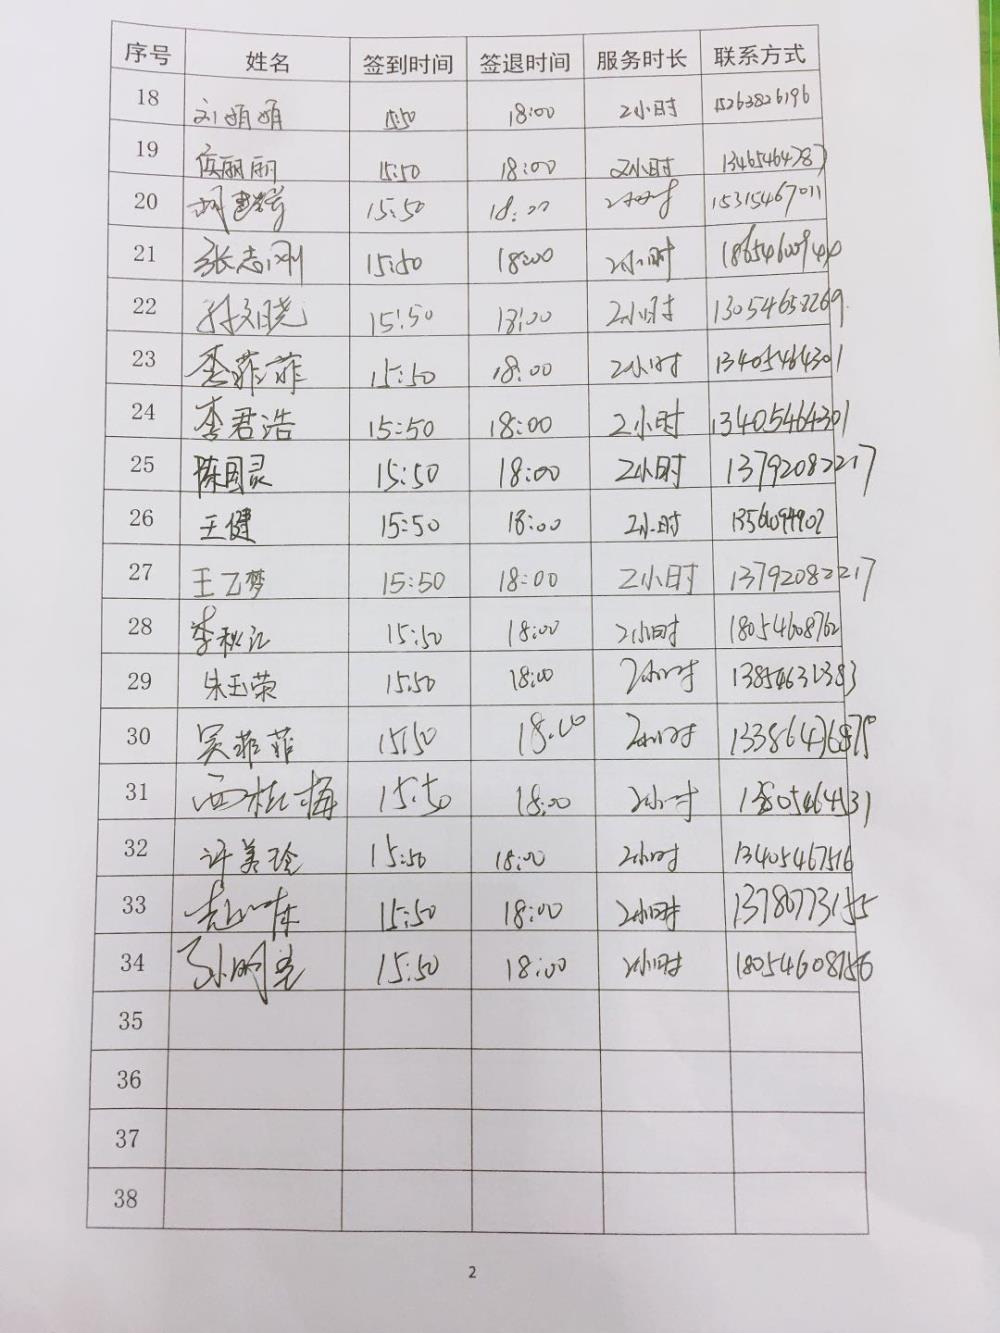 序号 姓名 签到时间 签退时间 服务时长 联系方式
18 刘娟娟 15:50 18:00 2小时 15263826196
19 侯丽丽 15:50 18:00 2小时
20 15:50 18:00 2小时 15315467011
21 张志刚 15:50 18:00 2小时
22 孙文晓 15:50 18:00 2小时 13054658269
23 李菲菲 15:50 18:00 2小时 13405464301
24 李君浩 15:50 18:00 2小时 13405464301
25 陈国灵 15:50 18:00 2小时 13792082217
26 王健 15:50 18:00 2小时
27 王乙梦 15:50 18:00 2小时 13792082217
28 李秋江 15:50 18:00 2小时 18054608762
29 朱玉荣 15:50 18:00 2小时 13854632383
30 吴菲菲 15:50 18:00 2小时
31 西桂梅 15:50 18:00 2小时
32 许美玲 15:50 18:00 2小时 13405467516
33 15:50 18:00 2小时
34 孙明亮 15:50 18:00 2小时
35
36
37
38
2